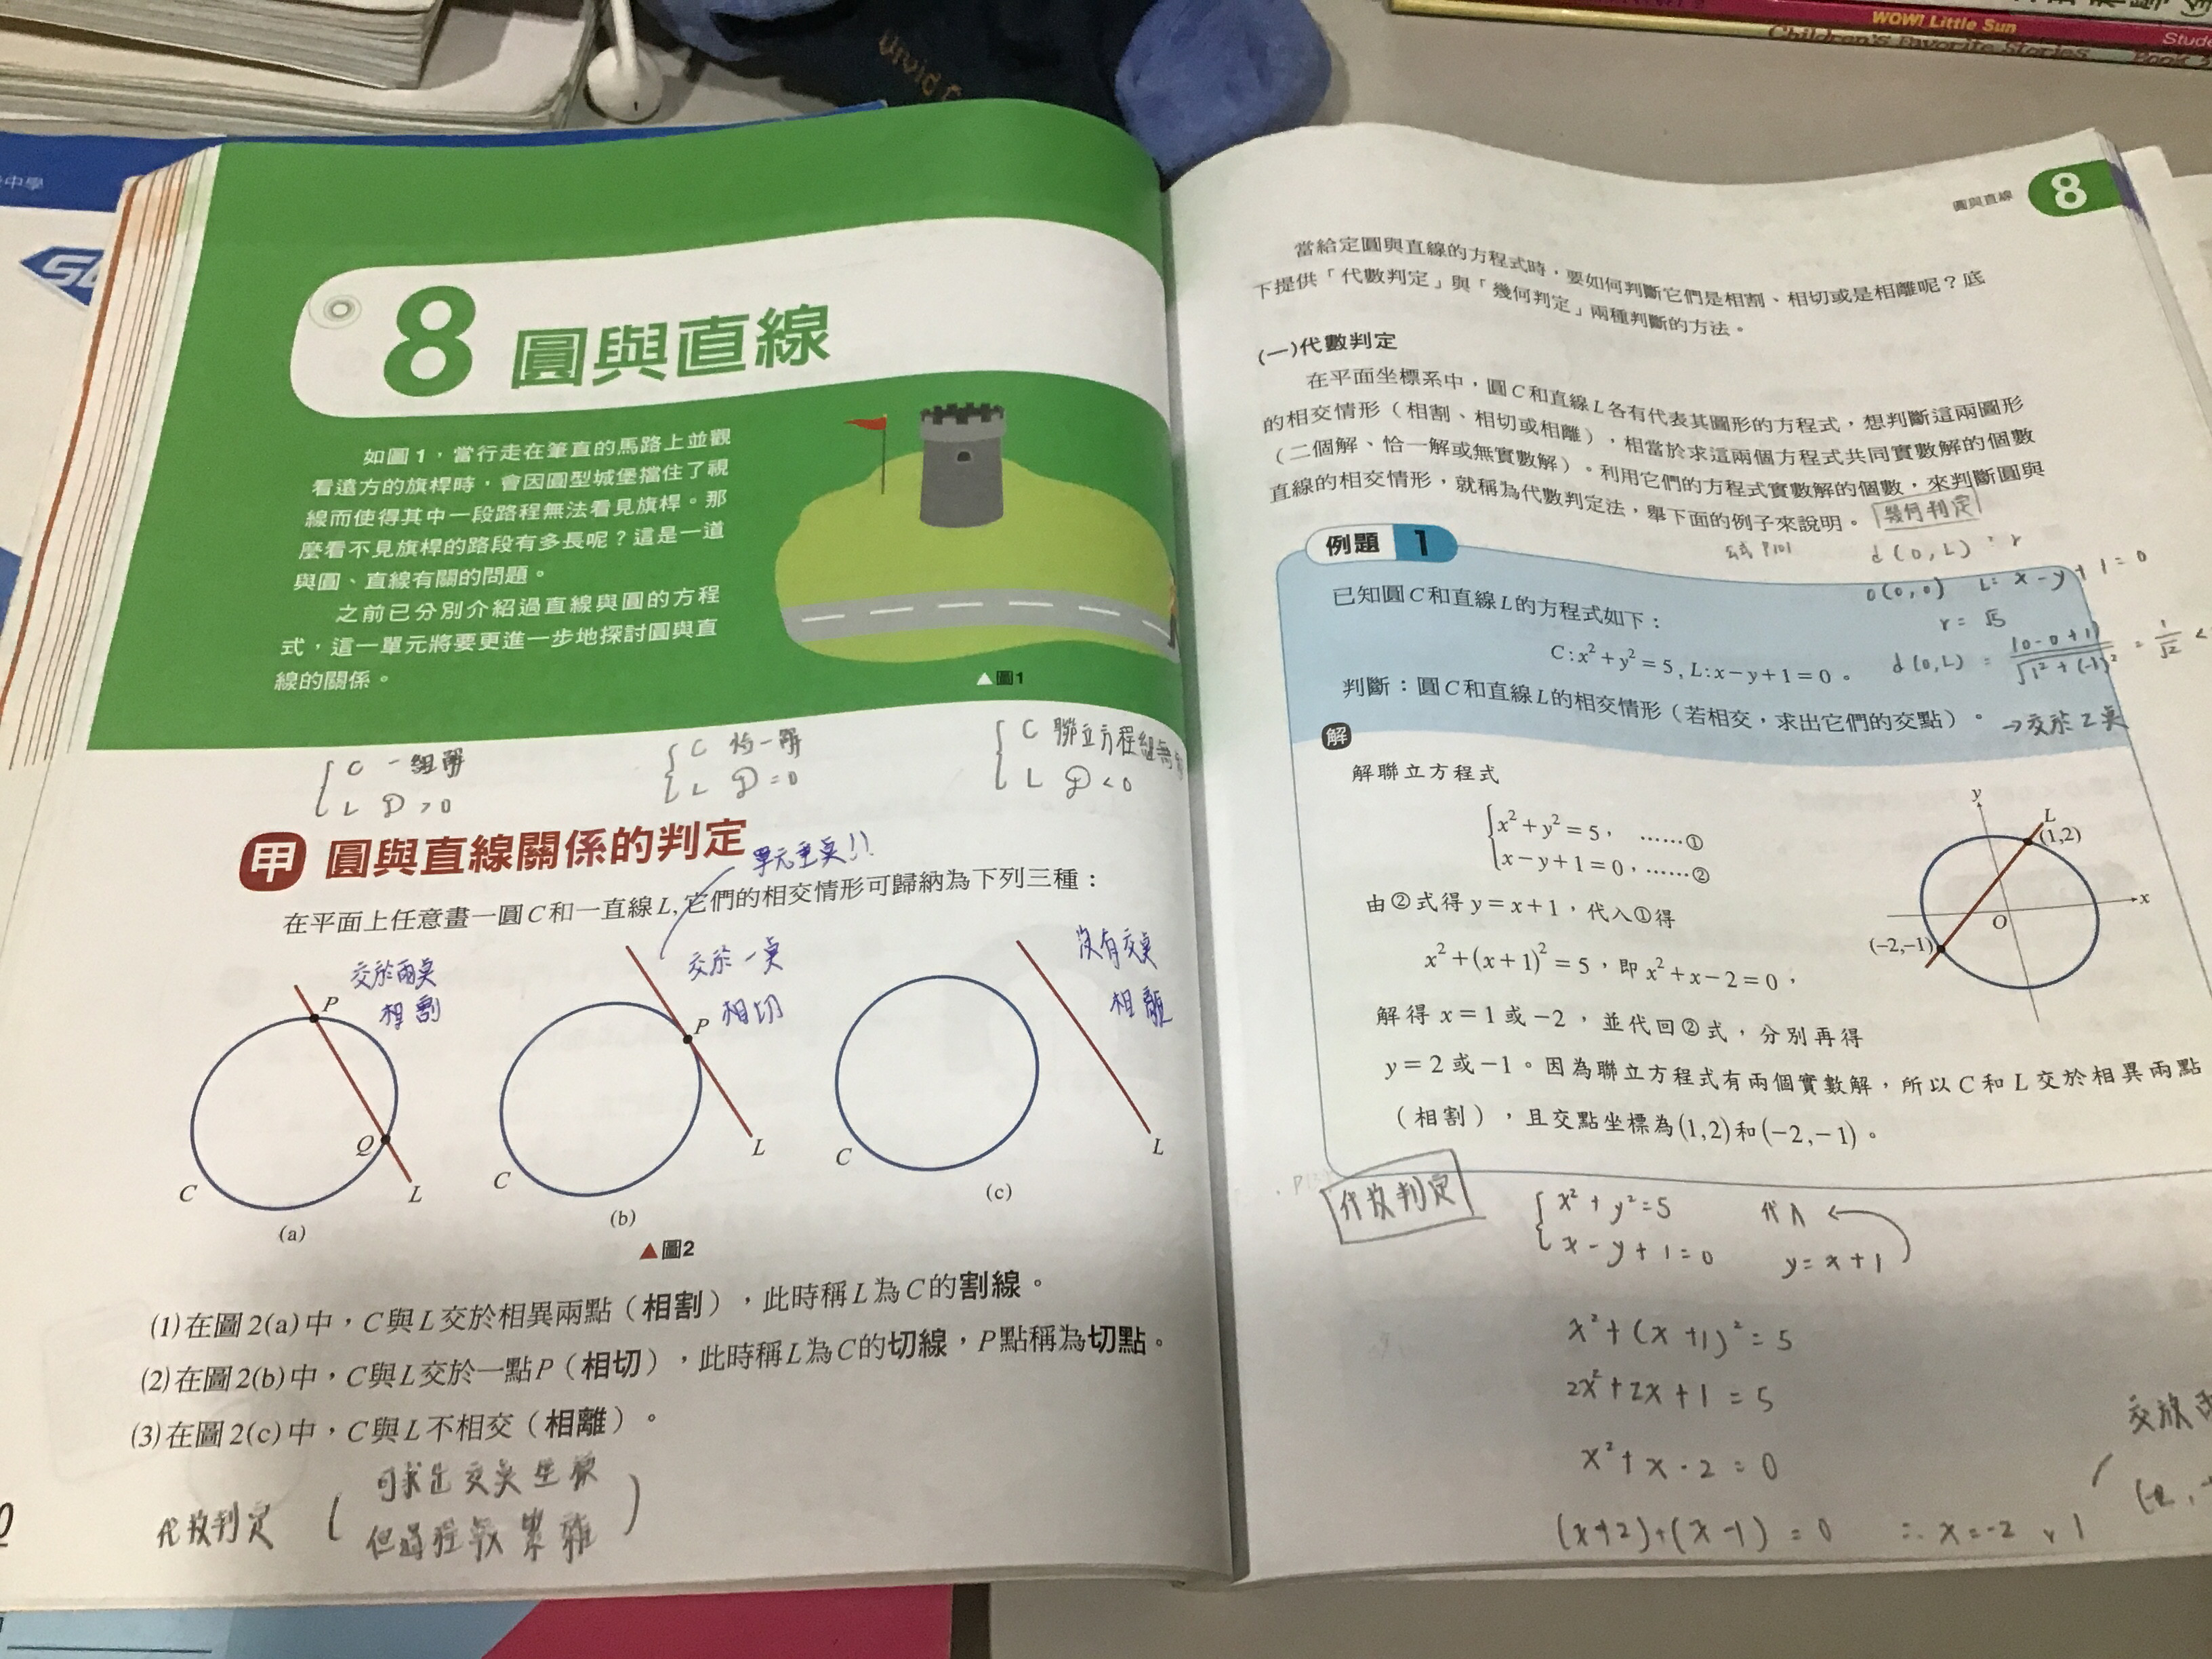 WOW! Little Sun
Children's Favorite Stories
Book 2
中學
8 圓與直線
如圖1，當行走在筆直的馬路上並觀
看遠方的旗桿時，會因圓型城堡擋住了視
線而使得其中一段路程無法看見旗桿。那
麼看不見旗桿的路段有多長呢？這是一道
與圓、直線有關的問題。
之前已分別介紹過直線與圓的方程
式，這一單元將要更進一步地探討圓與直
線的關係。
▲圖1
C 一組解
L D > 0
C 恰一解
L D = 0
C 聯立方程組無
L D < 0
甲 圓與直線關係的判定
單元重點!!
在平面上任意畫一圓C和一直線L,它們的相交情形可歸納為下列三種：
交於兩點
相割
P
Q
C
L
(a)
交於一點
相切
P
C
L
(b)
沒有交點
相離
C
L
(c)
▲圖2
(1)在圖2(a)中，C與L交於相異兩點（相割），此時稱L為C的割線。
(2)在圖2(b)中，C與L交於一點P（相切），此時稱L為C的切線，P點稱為切點。
(3)在圖2(c)中，C與L不相交（相離）。
代數判定
可求出交點坐標
但過程較繁雜
圓與直線 8
當給定圓與直線的方程式時，要如何判斷它們是相割、相切或是相離呢？底
下提供「代數判定」與「幾何判定」兩種判斷的方法。
(一)代數判定
在平面坐標系中，圓C和直線L各有代表其圖形的方程式，想判斷這兩圖形
的相交情形（相割、相切或相離），相當於求這兩個方程式共同實數解的個數
（二個解、恰一解或無實數解）。利用它們的方程式實數解的個數，來判斷圓與
直線的相交情形，就稱為代數判定法，舉下面的例子來說明。
幾何判定
公式 P101
d(O,L) r
O(0,0) L: x-y+1=0
r = √5
d(O,L) = |0-0+1| / √1²+(-1)² = 1/√2 <
→交於2點
例題 1
已知圓C和直線L的方程式如下：
C:x²+y²=5, L:x-y+1=0。
判斷：圓C和直線L的相交情形（若相交，求出它們的交點）。
解
解聯立方程式
x²+y²=5， ……①
x-y+1=0，……②
由②式得 y=x+1，代入①得
x²+(x+1)²=5，即 x²+x-2=0，
解得 x=1 或 -2，並代回②式，分別再得
y=2 或 -1。因為聯立方程式有兩個實數解，所以C和L交於相異兩點
（相割），且交點坐標為(1,2)和(-2,-1)。
y
L
(1,2)
x
O
(-2,-1)
代數判定
x²+y²=5 代入
x-y+1=0 y=x+1
x²+(x+1)²=5
2x²+2x+1=5
x²+x-2=0
(x+2)+(x-1)=0 ∴x=-2 , 1